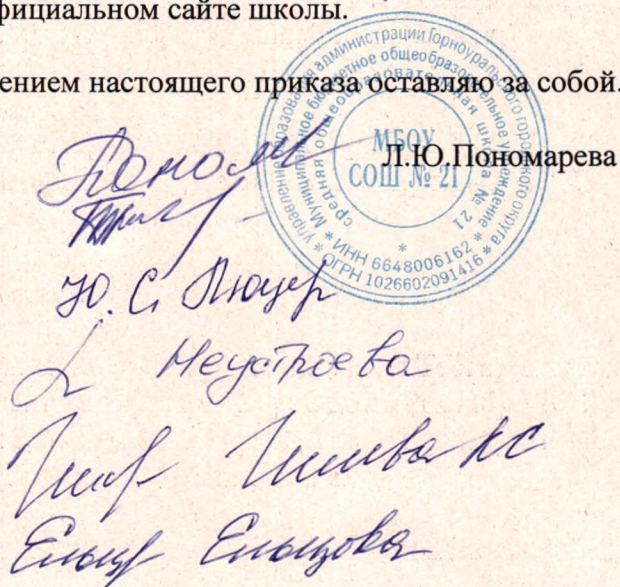 фициальном сайте школы.
ением настоящего приказа оставляю за собой.
Л.Ю.Пономарева
управление образования администрации Горноуральского городского округа
Муниципальное бюджетное общеобразовательное учреждение
средняя общеобразовательная школа № 21
МБОУ
СОШ № 21
* ИНН 6648006162 *
* ОГРН 1026602091416 *
Поном
Ю. С. Люцер
Неустроева
КС
Ельцова